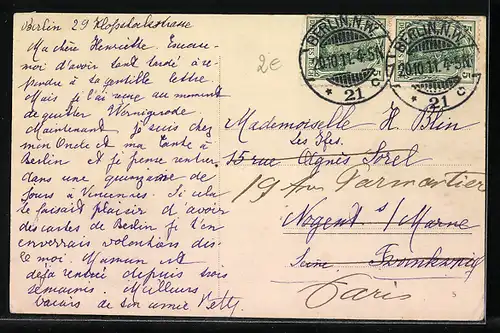 Berlin 29 Klopstockstrasse
Ma chère Henriette. Excuse-
moi d'avoir tant tardé à ré-
pondre à ta gentille lettre
Mais je l'ai reçue au moment
de quitter Wernigerode
Maintenant je suis chez
mon Oncle et ma tante à
Berlin et je pense rentrer
dans une quinzaine de
jours à Vincennes. Si cela
te faisait plaisir d'avoir
des cartes de Berlin je t'en
enverrais volontiers dis-
le moi. Maman est
déjà rentrée depuis trois
semaines. Meilleurs
baisers de ton amie
2€
BERLIN, N.W.
20.10.11. 4-5N
* 21 c
BERLIN, N.W.
20.10.11. 4-5N
* 21 c
Mademoiselle H. Blin
15 rue Agnès Sorel
19 Parmentier
Nogent s/ Marne
Seine
Paris